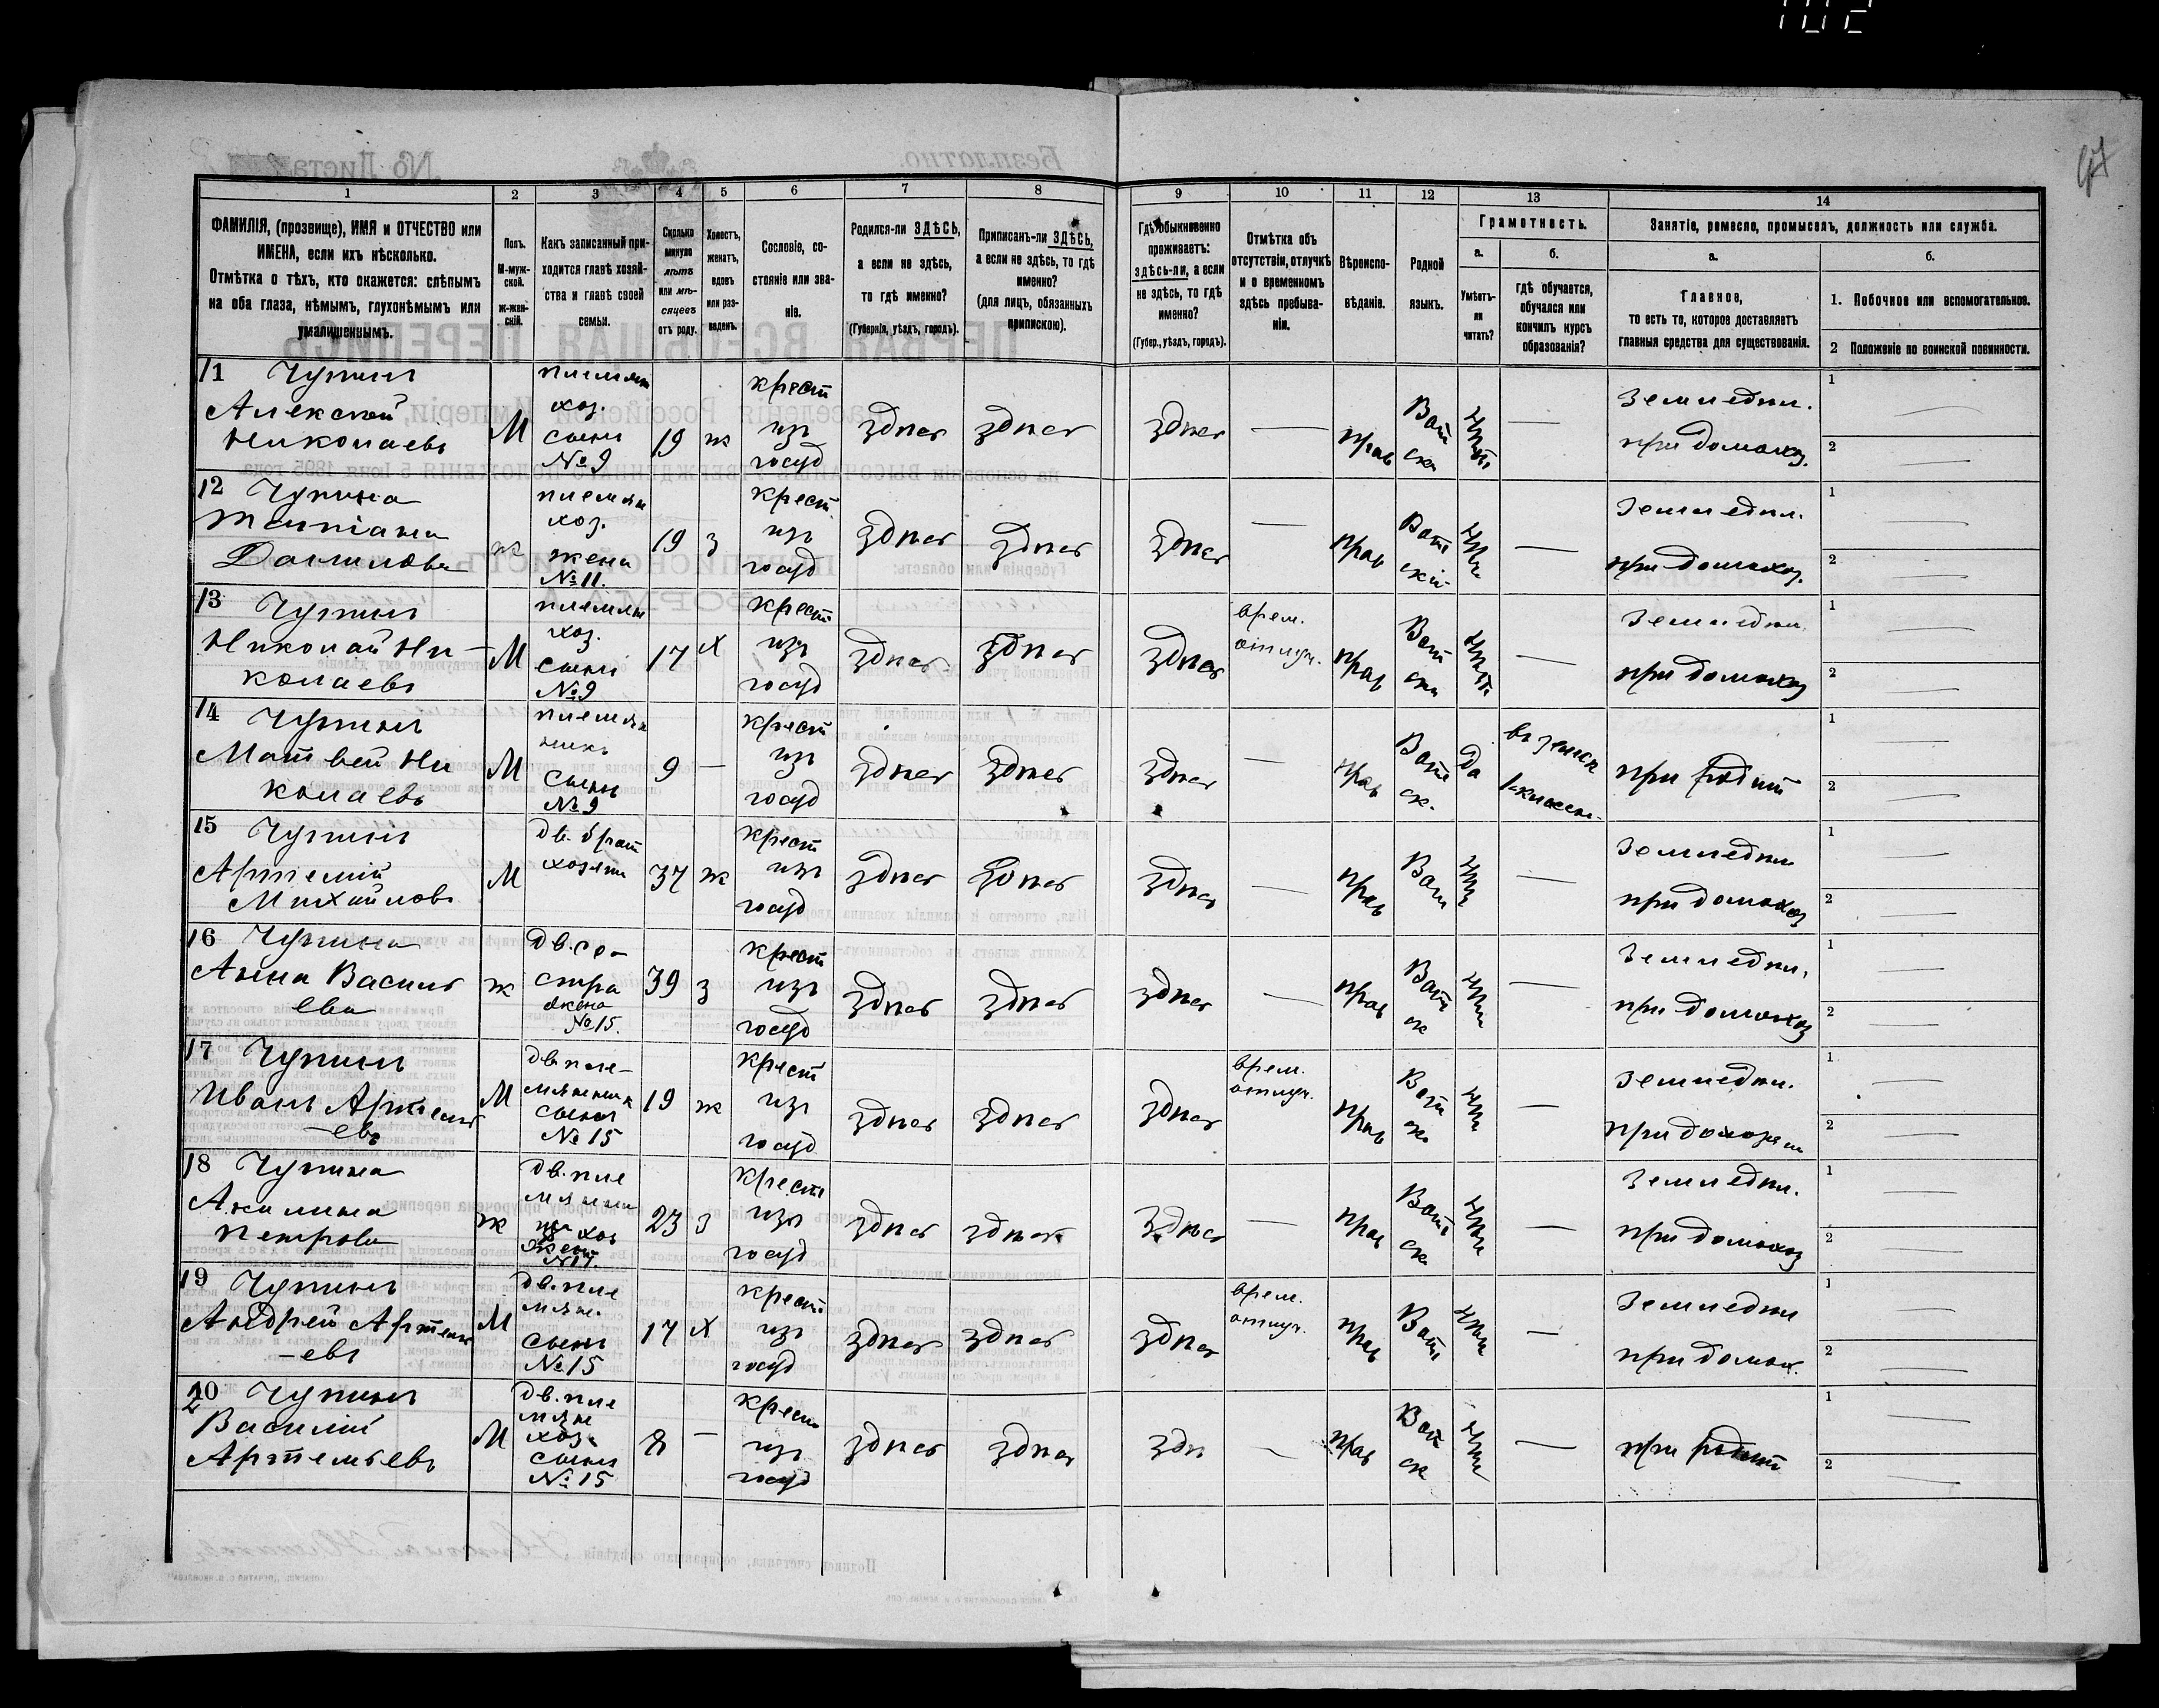 102
67
1 2 3 4 5 6 7 8 9 10 11 12 13 14
ФАМИЛІЯ, (прозвище), ИМЯ и ОТЧЕСТВО или
ИМЕНА, если ихъ нѣсколько.
Отмѣтка о тѣхъ, кто окажется: слѣпымъ
на оба глаза, нѣмымъ, глухонѣмымъ или
умалишеннымъ.
Полъ.
М-муж-
ской.
ж-жен-
скій.
Какъ записанный при-
ходится главѣ хозяй-
ства и главѣ своей
семьи.
Сколько
минуло
лѣтъ
или мѣ-
сяцевъ
отъ роду.
Холостъ,
женатъ,
вдовъ
или раз-
веденъ.
Сословіе, со-
стояніе или зва-
ніе.
Родился-ли ЗДѢСЬ,
а если не здѣсь,
то гдѣ именно?
(Губернія, уѣздъ, городъ).
Приписанъ-ли ЗДѢСЬ,
а если не здѣсь, то гдѣ
именно?
(для лицъ, обязанныхъ
припискою).
Гдѣ обыкновенно
проживаетъ:
здѣсь-ли, а если
не здѣсь, то гдѣ
именно?
(Губер., уѣздъ, городъ).
Отмѣтка объ
отсутствіи, отлучкѣ
и о временномъ
здѣсь пребыва-
ніи.
Вѣроиспо-
вѣданіе.
Родной
языкъ.
Грамотность.
а.
Умѣетъ-
ли
читать?
б.
гдѣ обучается,
обучался или
кончилъ курсъ
образованія?
Занятіе, ремесло, промыселъ, должность или служба.
а.
Главное,
то есть то, которое доставляетъ
главныя средства для существованія.
б.
1. Побочное или вспомогательное.
2 Положеніе по воинской повинности.
11 Чупинъ
Алексѣй
Николаевъ
М
племян
хоз.
сынъ
№ 9
19
ж
крест
изъ
госуд
здѣсь
здѣсь
здѣсь
—
прав
Вот
ск.
нѣтъ
—
Земледѣл.
при домохоз.
1 —
2 —
12 Чупина
Татіана
Данилова
ж
племян
хоз.
жена
№ 11.
19
з
крест
изъ
госуд
здѣсь
здѣсь
здѣсь
—
прав
Вотс
скій
нѣтъ
—
Земледѣл.
при домохоз.
1 —
2 —
13 Чупинъ
Николай Ни-
колаевъ
М
племян
хоз.
сынъ
№ 9
17
х
крест
изъ
госуд
здѣсь
здѣсь
здѣсь
врем.
отлуч.
прав
Вот
ск.
нѣтъ
—
Земледѣл.
при домохоз
1 —
2 —
14 Чупинъ
Матвей Ни
колаевъ
М
племян
никъ
сынъ
№ 9
9
—
крест
изъ
госуд
здѣсь
здѣсь
здѣсь
—
прав
Вот
ск.
да
въ земск
1-классн.
при родит
1 —
2 —
15 Чупинъ
Артемій
Михайловъ
М
дв. брат
хозяин
37
ж
крест
изъ
госуд
здѣсь
здѣсь
здѣсь
—
прав
Вот
нѣт
—
Земледѣл
при домохоз
1 —
2 —
16 Чупина
Анна Василь
ева
ж
дв. се-
стра
жена
№ 15.
39
з
крест
изъ
госуд
здѣсь
здѣсь
здѣсь
—
прав
Вот
ск
нѣт
—
Земледѣл.
при домохоз
1 —
2 —
17 Чупинъ
Иванъ Артемь
-евъ
М
дв. пле-
мянник
сынъ
№ 15
19
ж
крест
изъ
госуд
здѣсь
здѣсь
здѣсь
врем.
отлуч.
прав
Вот
ск
нѣт
—
Земледѣл.
1 —
2 —
18 Чупина
Акилина
Петрова
ж
дв. пле
хоз
жена
№ 17.
23
з
крест
изъ
госуд
здѣсь
здѣсь
здѣсь
—
прав
Вот
ск.
нѣт
—
Земледѣл.
при домохоз
1 —
2 —
19 Чупинъ
Андрей Артемь
-евъ
М
дв. пле
мян.
сынъ
№ 15
17
х
крест
изъ
госуд
здѣсь
здѣсь
здѣсь
врем.
отлуч.
прав
Вот
нѣт
—
Земледѣл
при домох.
1 —
2 —
20 Чупинъ
Василій
Артемьевъ
М
дв. пле
мян
хоз.
сынъ
№ 15
8
—
крест
изъ
госуд
здѣсь
здѣсь
здѣ
—
прав
Вот
ск
нѣт
—
при родит
1 —
2 —